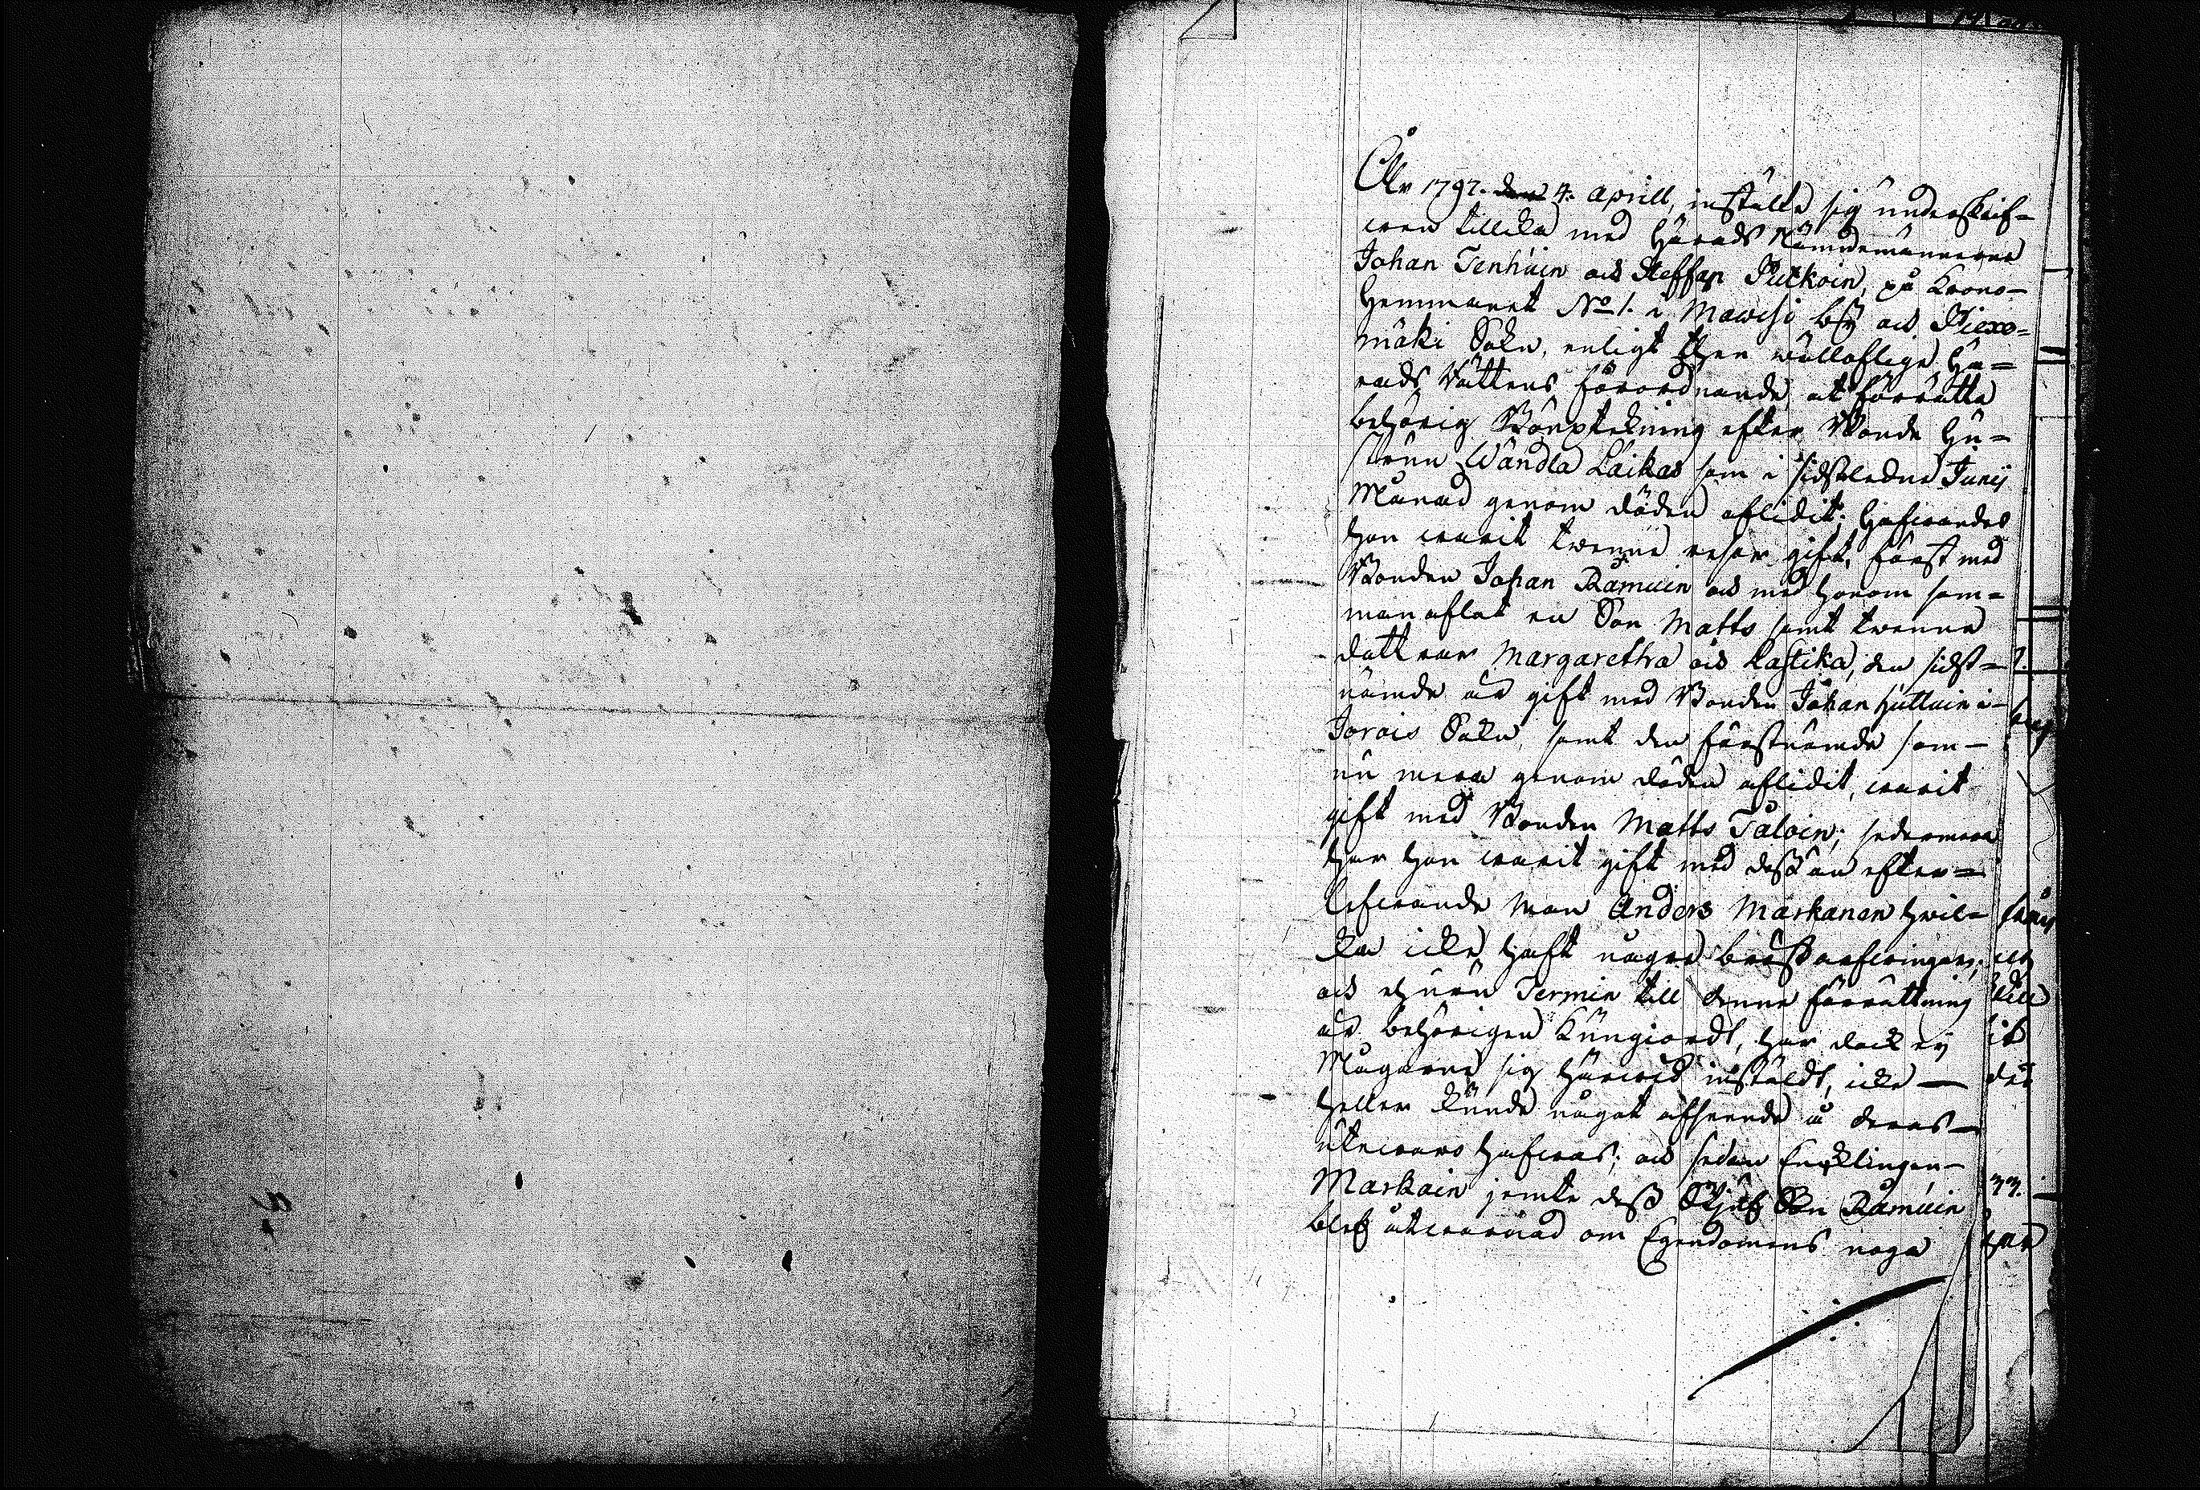 År 1797. den 4. Aprill, instälte sig underskrif-
wen tillika med Härads Nämndemännerne
Johan Tenhuin och Steffan Putkoin, på Krono-
Hemmanet No 1. i Mawisi by och Piexe-
mäki Sokn, enligt then wällofliga Hä-
rads Rättens förordnande, at förrätta
behörig Bouptekning efter Bonde Hu-
strun Wåndla Laikas som i sidstledne Junij
Månad genom döden aflidit; Hafwandes
hon warit twenne resor gift, först med
Bonden Johan Rämuin och med honom sam-
man aflat en Son Matts samt twenne
döttrar Margaretha och Kastika, den sidst-
nämde är gift med Bonden Johan Huttuin i
Jorois Sokn, samt den förstnämde som
nu mera genom döden aflidit, warit
gift med Bonden Matts Taloin; sedermera
har hon warit gift med dess än efter-
lefwande Man Anders Markanen hwil-
ka icke haft någre bröstarfwingar;
och ehuru Termin till denne förrättning
är behörigen Kungiordt, har dock ej
Mågarne sig härwid instäldt, icke
heller kunde något afseende å deras
utewaro hafwas; och sedan Encklingen
Markain jemte dess Stjuf Son Rämuin
blef åtwarnad om Egendomens noga